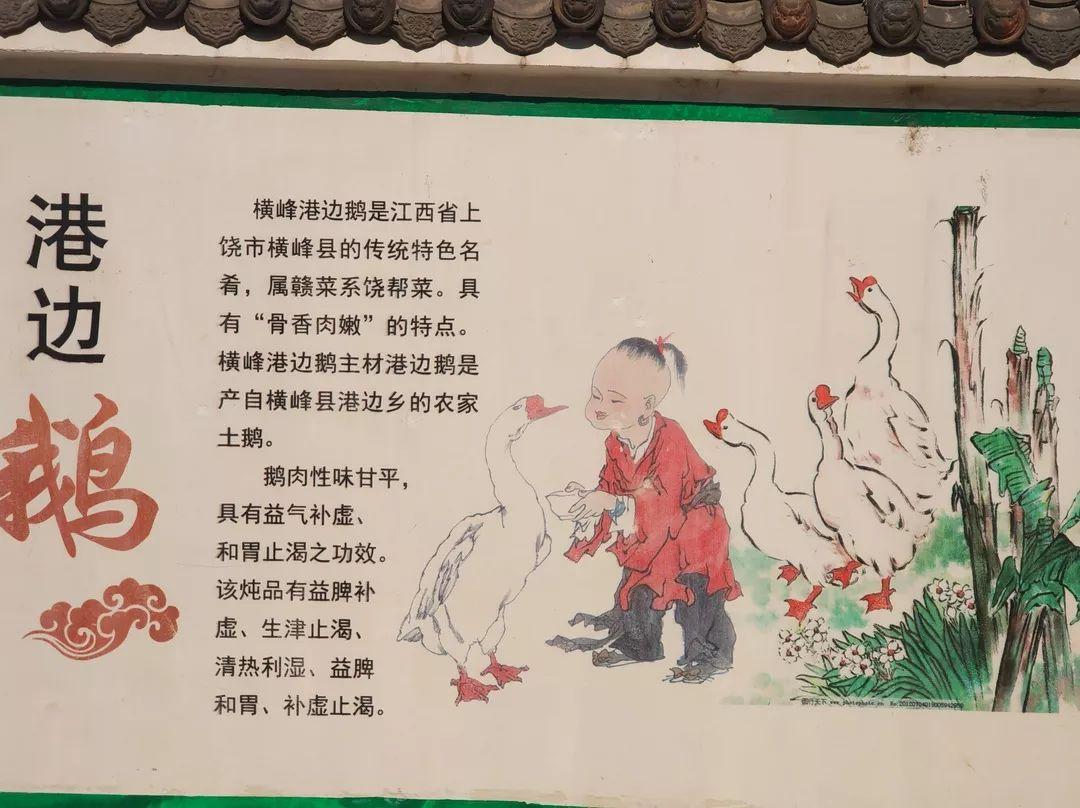 港边
鹅
横峰港边鹅是江西省上
饶市横峰县的传统特色名
肴，属赣菜系饶帮菜。具
有“骨香肉嫩”的特点。
横峰港边鹅主材港边鹅是
产自横峰县港边乡的农家
土鹅。
鹅肉性味甘平，
具有益气补虚、
和胃止渴之功效。
该炖品有益脾补
虚、生津止渴、
清热利湿、益脾
和胃、补虚止渴。
图行天下 www.photophoto.cn